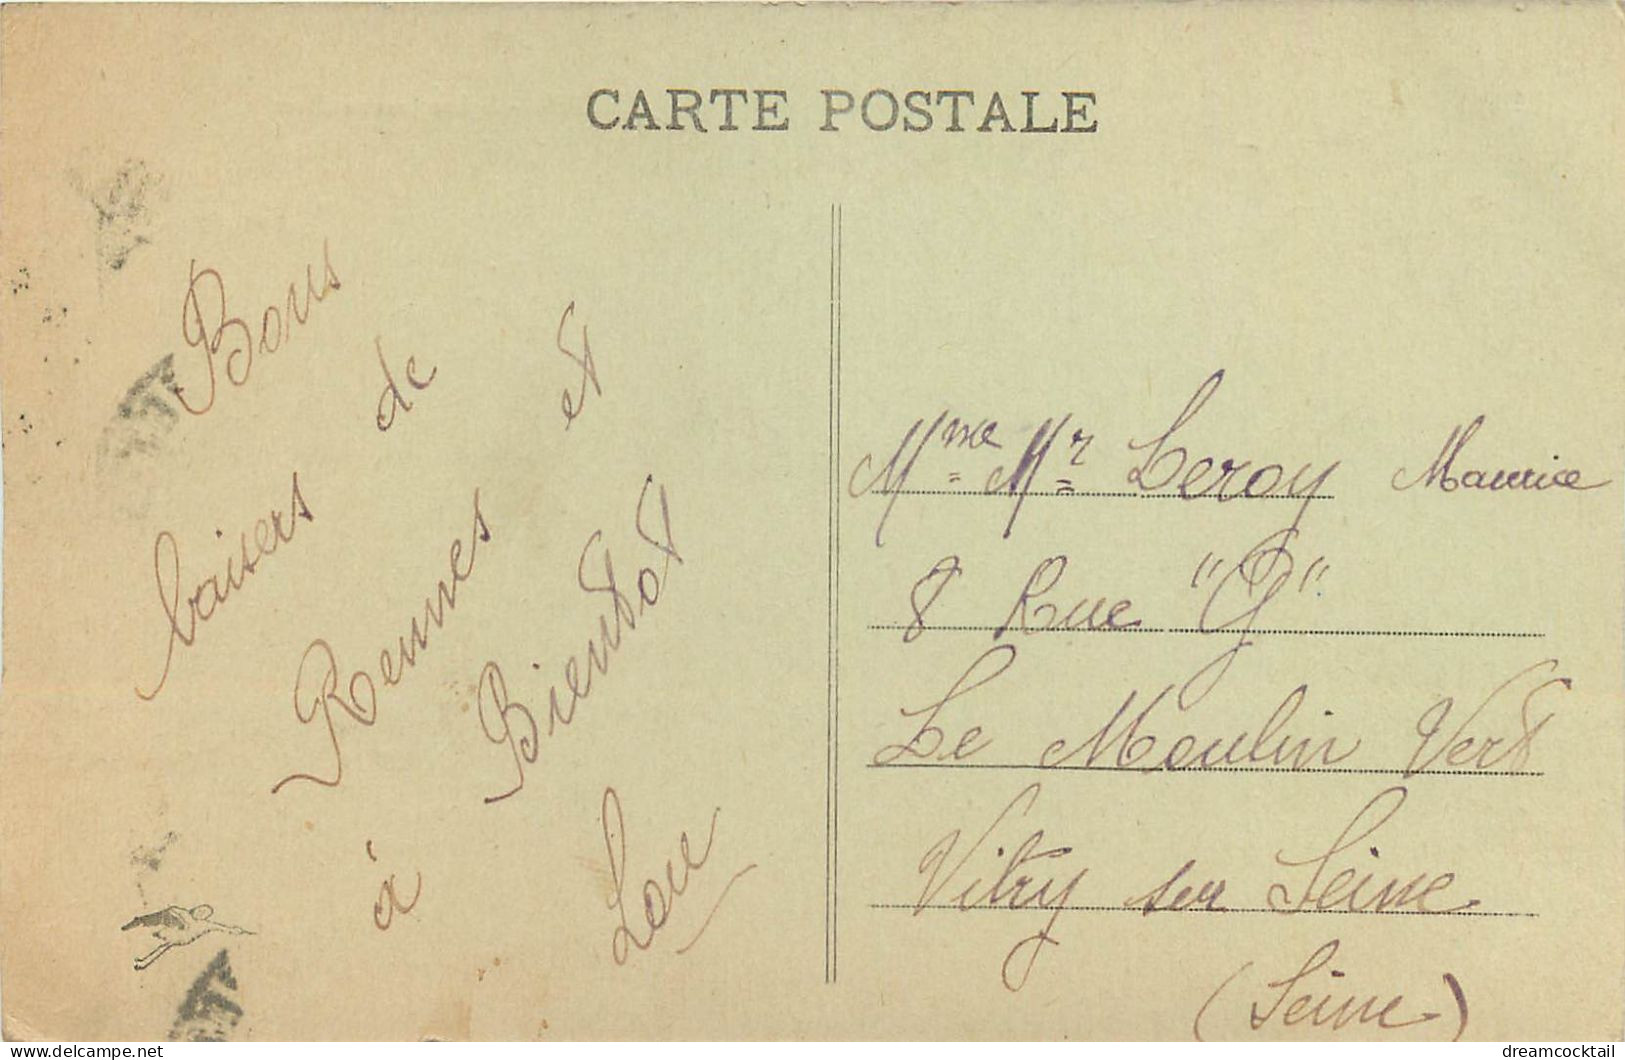 CARTE POSTALE
Bons
baisers de
Rennes et
à Bientot
Lou
Mme Mr Leroy Maurice
8 Rue "G"
Le Moulin Vert
Vitry sur Seine
(Seine)
dreamcocktail